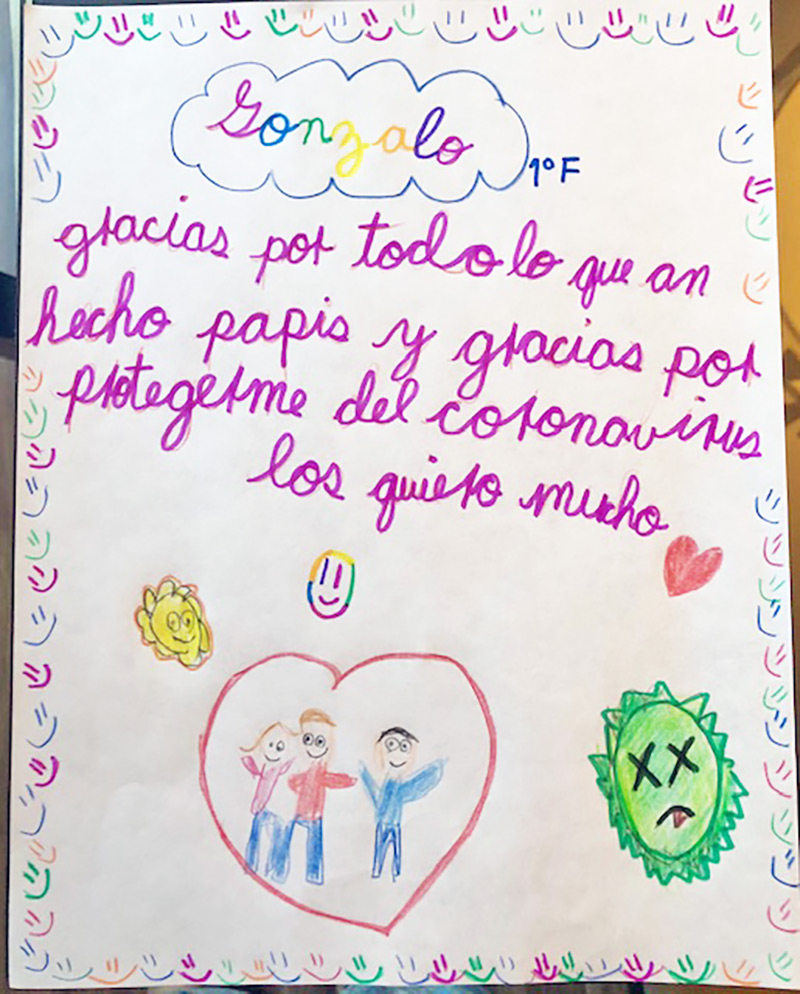 Gonzalo
1º F
gracias por todo lo que an
hecho papis y gracias por
protegerme del coronavirus
los quiero mucho